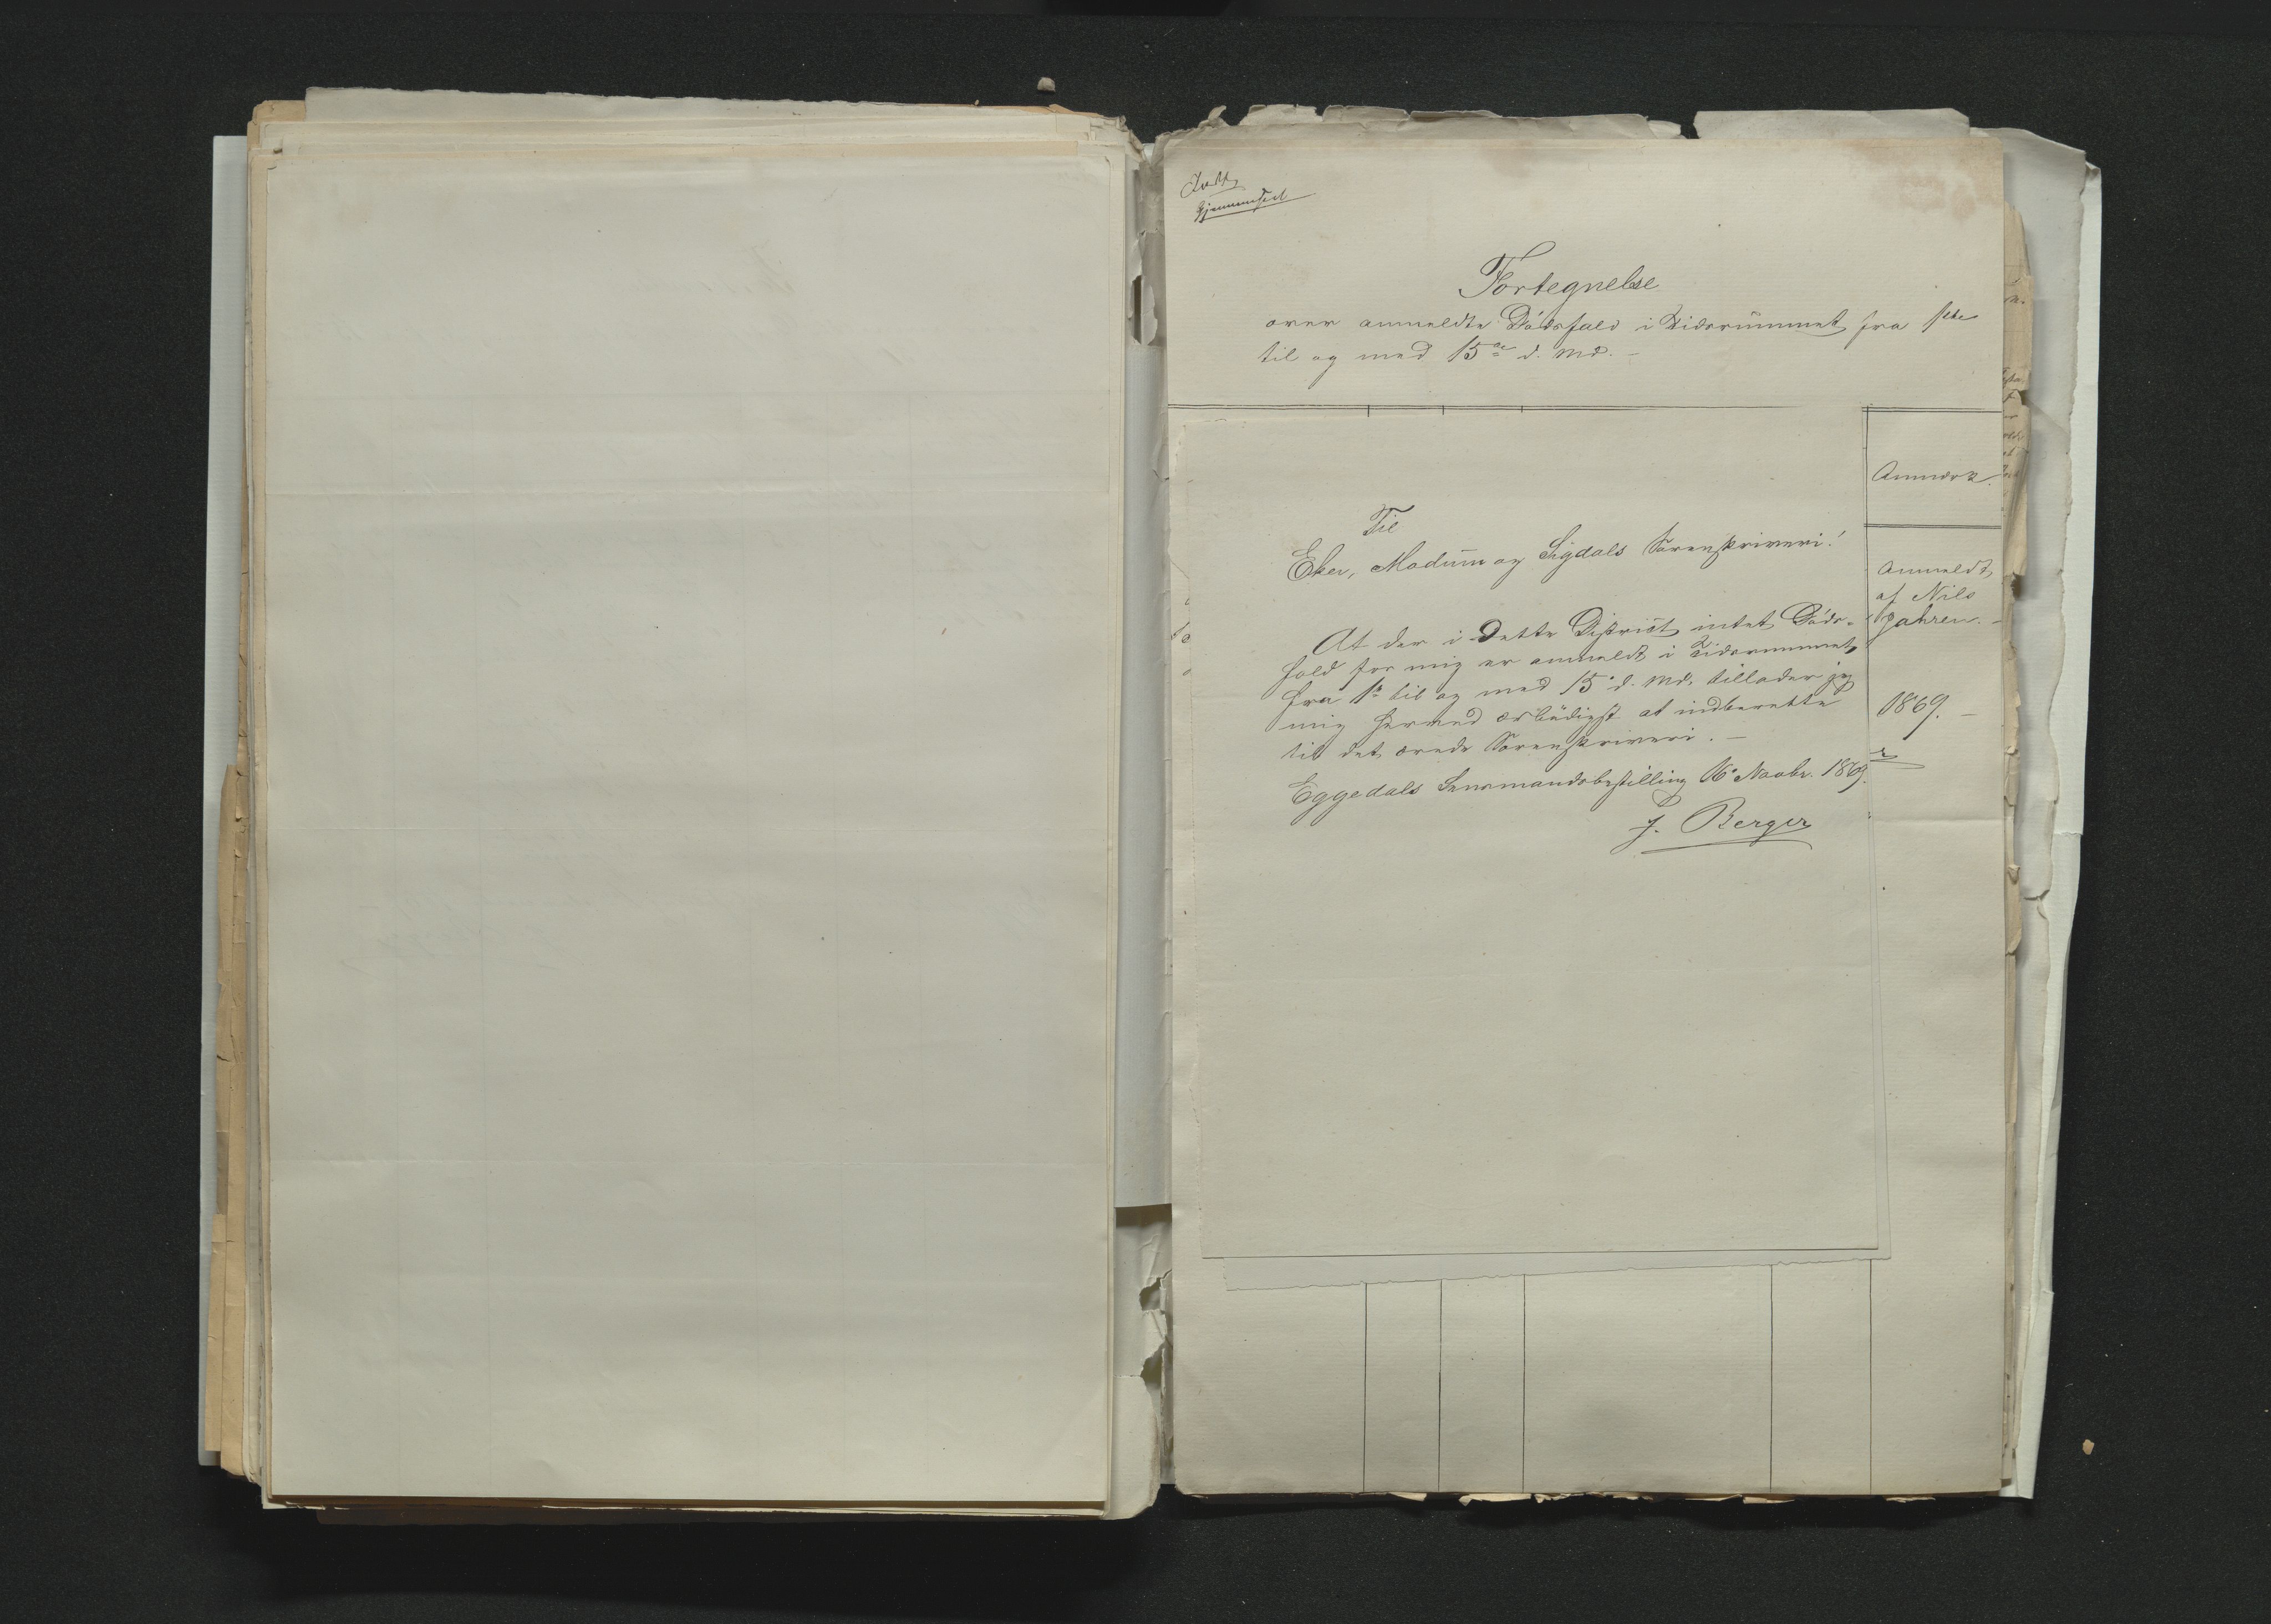 Fortegnelse
over anmeldte Dödsfald i Tidsrummet fra 1ste
til og med 15de d. Md. –
Anmærk.
Anmeldt
af Nils
1869. –
Til
Eker, Modum og Sigdals Sorenskriveri!
At der i Dette District intet Döds-
fald for mig er anmeldt i Tidsrummet
fra 1e til og med 15e d. Md. tillader jeg
mig herved ærbödigst at indberette
til det ærede Sorenskriveri. –
Eggedals Lensmandsbestilling 16e Novbr. 1869.
J. Berger